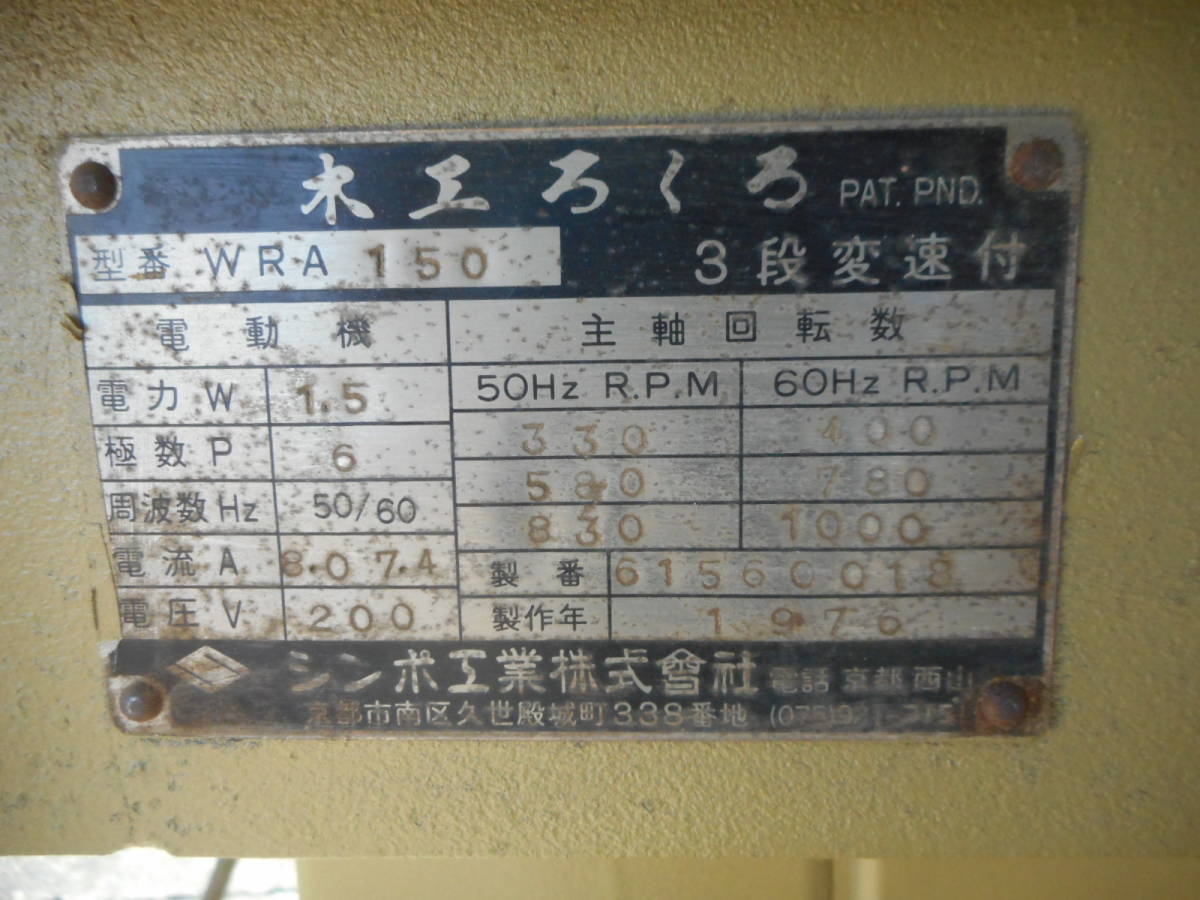 木工ろくろ PAT. PND.
型番 WRA 150 3段変速付
電動機 主軸回転数
電力 W 1.5 50Hz R.P.M 60Hz R.P.M
330 400
極数 P 6
580 780
周波数 Hz 50/60
830 1000
電流 A 8.0 7.4 製番 61560018
電圧 V 200 製作年 1976
シンポ工業株式會社 電話 京都 西山
京都市南区久世殿城町338番地